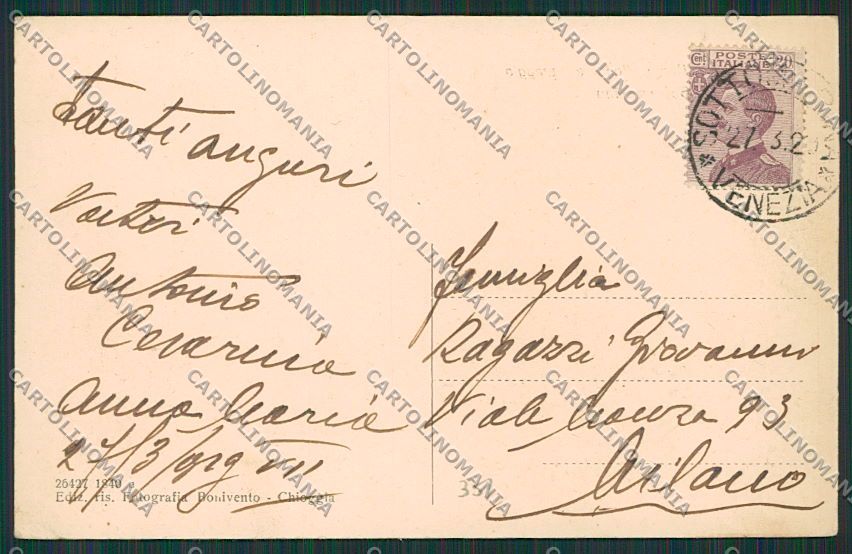 Tanti auguri
Vostri
Antonio
Cesarina
Anna Maria
27/3/929 VII
26427 1840 e
Ediz. ris. Fotografia Bonivento - Chioggia
POSTE
ITALIANE
Cmi 20
SOTTOM
27.3.29
* VENEZIA *
Famiglia
Ragazzi Giovanni
Viale Monza 93
Milano
33
CARTOLINOMANIA